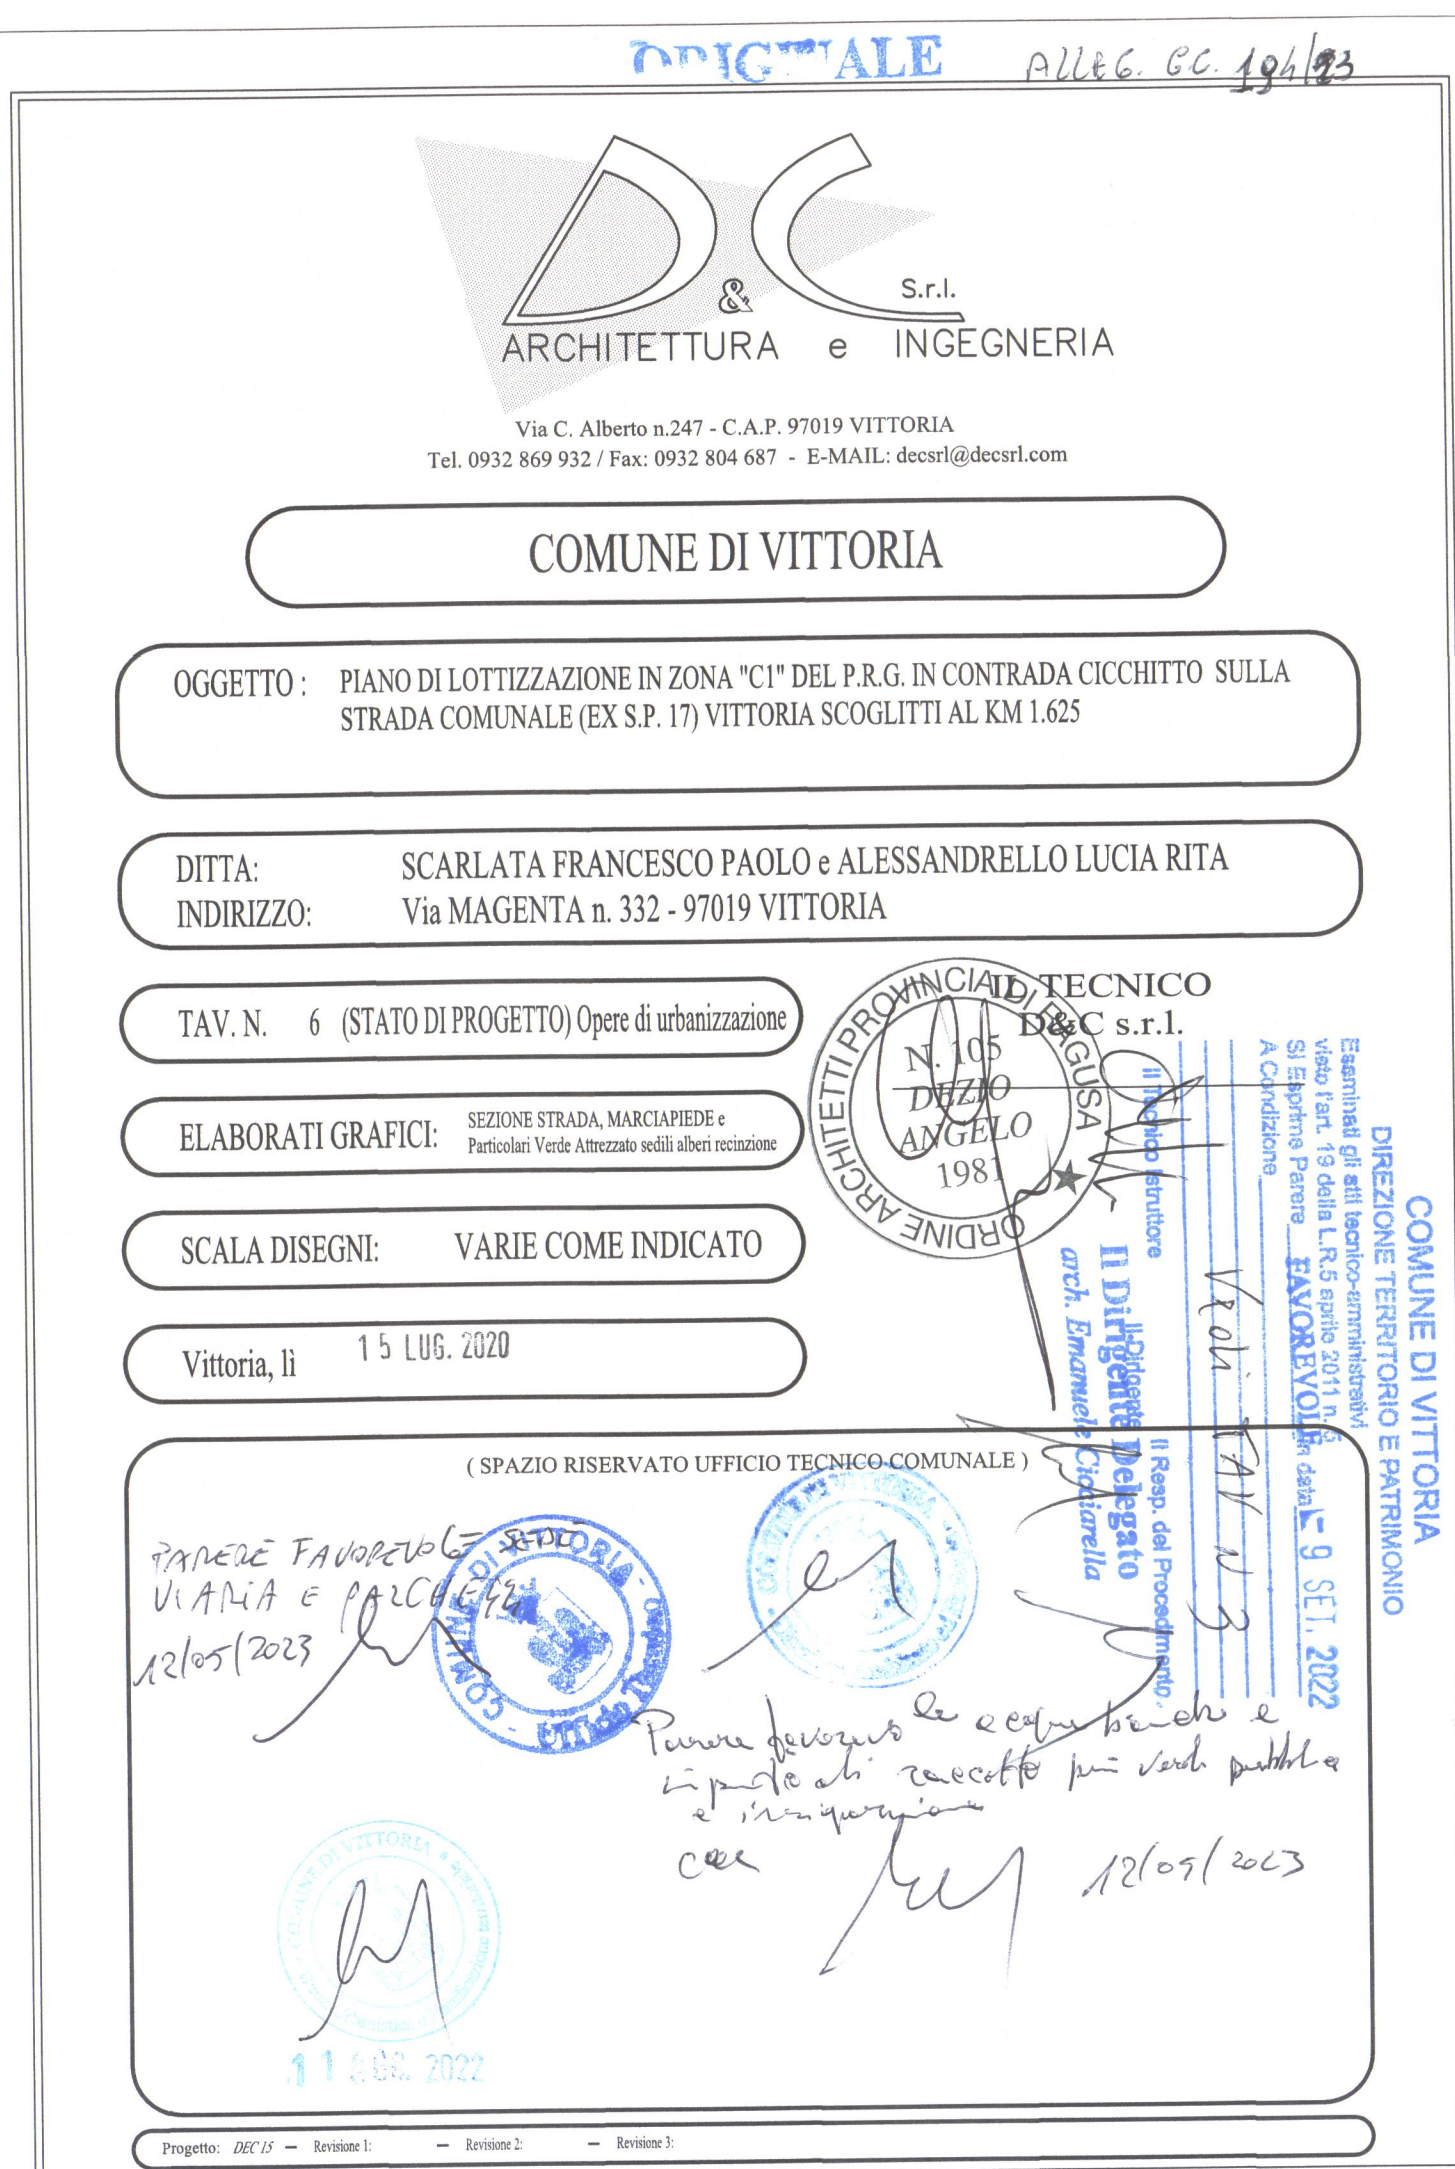 ORIGINALE
ALLEG. G.C. 194/23
D&C S.r.l.
ARCHITETTURA e INGEGNERIA
Via C. Alberto n.247 - C.A.P. 97019 VITTORIA
Tel. 0932 869 932 / Fax: 0932 804 687 - E-MAIL: decsrl@decsrl.com
COMUNE DI VITTORIA
OGGETTO : PIANO DI LOTTIZZAZIONE IN ZONA "C1" DEL P.R.G. IN CONTRADA CICCHITTO SULLA
STRADA COMUNALE (EX S.P. 17) VITTORIA SCOGLITTI AL KM 1.625
DITTA: SCARLATA FRANCESCO PAOLO e ALESSANDRELLO LUCIA RITA
INDIRIZZO: Via MAGENTA n. 332 - 97019 VITTORIA
TAV. N. 6 (STATO DI PROGETTO) Opere di urbanizzazione
ELABORATI GRAFICI: SEZIONE STRADA, MARCIAPIEDE e
Particolari Verde Attrezzato sedili alberi recinzione
SCALA DISEGNI: VARIE COME INDICATO
Vittoria, lì 15 LUG. 2020
IL TECNICO
D&C s.r.l.
ORDINE ARCHITETTI PROVINCIA DI RAGUSA
N. 105
DEZIO
ANGELO
1981
COMUNE DI VITTORIA
DIREZIONE TERRITORIO E PATRIMONIO
Esaminati gli atti tecnico-amministrativi
visto l'art. 19 della L.R.5 aprile 2011 n.5
Si Esprime Parere FAVOREVOLE in data - 9 SET. 2022
A Condizione
Vedi TAV N 3
Il Tecnico Istruttore Il Resp. del Procedimento
Il Dirigente
Il Dirigente Delegato
arch. Emanuele Cicciarella
( SPAZIO RISERVATO UFFICIO TECNICO COMUNALE )
PARERE FAVOREVOLE SEDE
VIARIA E PARCHEGGI
12/05/2023
COMUNE DI VITTORIA
Ufficio
COMUNE DI VITTORIA
Parere favorevole acque bianche e
raccolte per verde pubblico
e
12/05/2023
COMUNE DI VITTORIA
11 2022
Progetto: DEC 15 — Revisione 1: — Revisione 2: — Revisione 3: